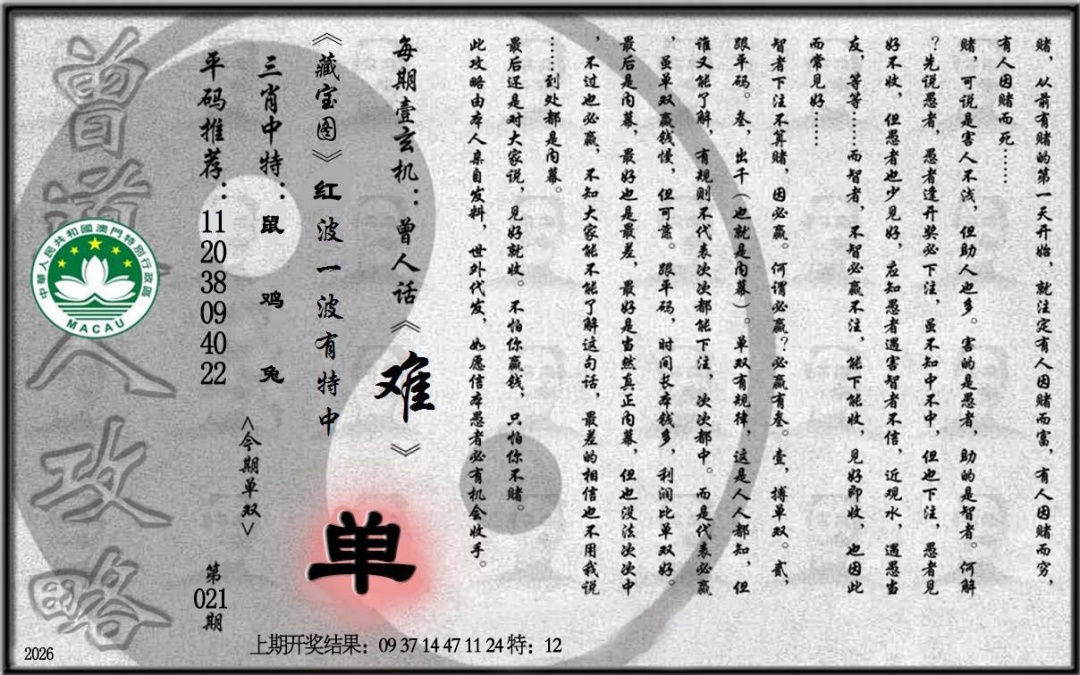 赌，从前有赌的第一天开始，就注定有人因赌而富，有人因赌而穷，
有人因赌而死……
赌，可说是害人不浅，但助人也多。害的是愚者，助的是智者。何解
？先说愚者，愚者逢开奖必下注，虽不知中不中，但也下注，愚者见
好不收，但愚者也少见好，应知愚者遇害智者不信，近观水，遇愚当
友，等等……而智者，不智必赢不注，能下能收，见好即收，也因此
而常见好……
智者下注不算赌，因必赢。何谓必赢？必赢有叁。壹，搏单双。贰，
跟单码。叁，出千（也就是内幕）。单双有规律，这是人人都知，但
谁又能了解，有规则不代表次次都能下注，次次都中。而是代表必赢
，虽单双赢钱慢，但可靠。跟单码，时间长本钱多，利润比单双好。
最后是内幕，最好也是最差，最好是当然真正内幕，但也没法次次中
，不过也必赢，不知大家能不能了解这句话，最差的相信也不用我说
……到处都是内幕。
最后还是对大家说，见好就收。不怕你赢钱，只怕你不赌。
此攻略由本人亲自发料，世外代发，如愿信本愚者必有机会收手。
每期壹玄机：曾人话《难》
《藏宝图》红波一波有特中
单
三肖中特：鼠 鸡 兔
<今期单双>
平码推荐：11 20 38 09 40 22
第021期
曾道人攻略
中華人民共和國澳門特別行政區
MACAU
上期开奖结果：09 37 14 47 11 24 特：12
2026